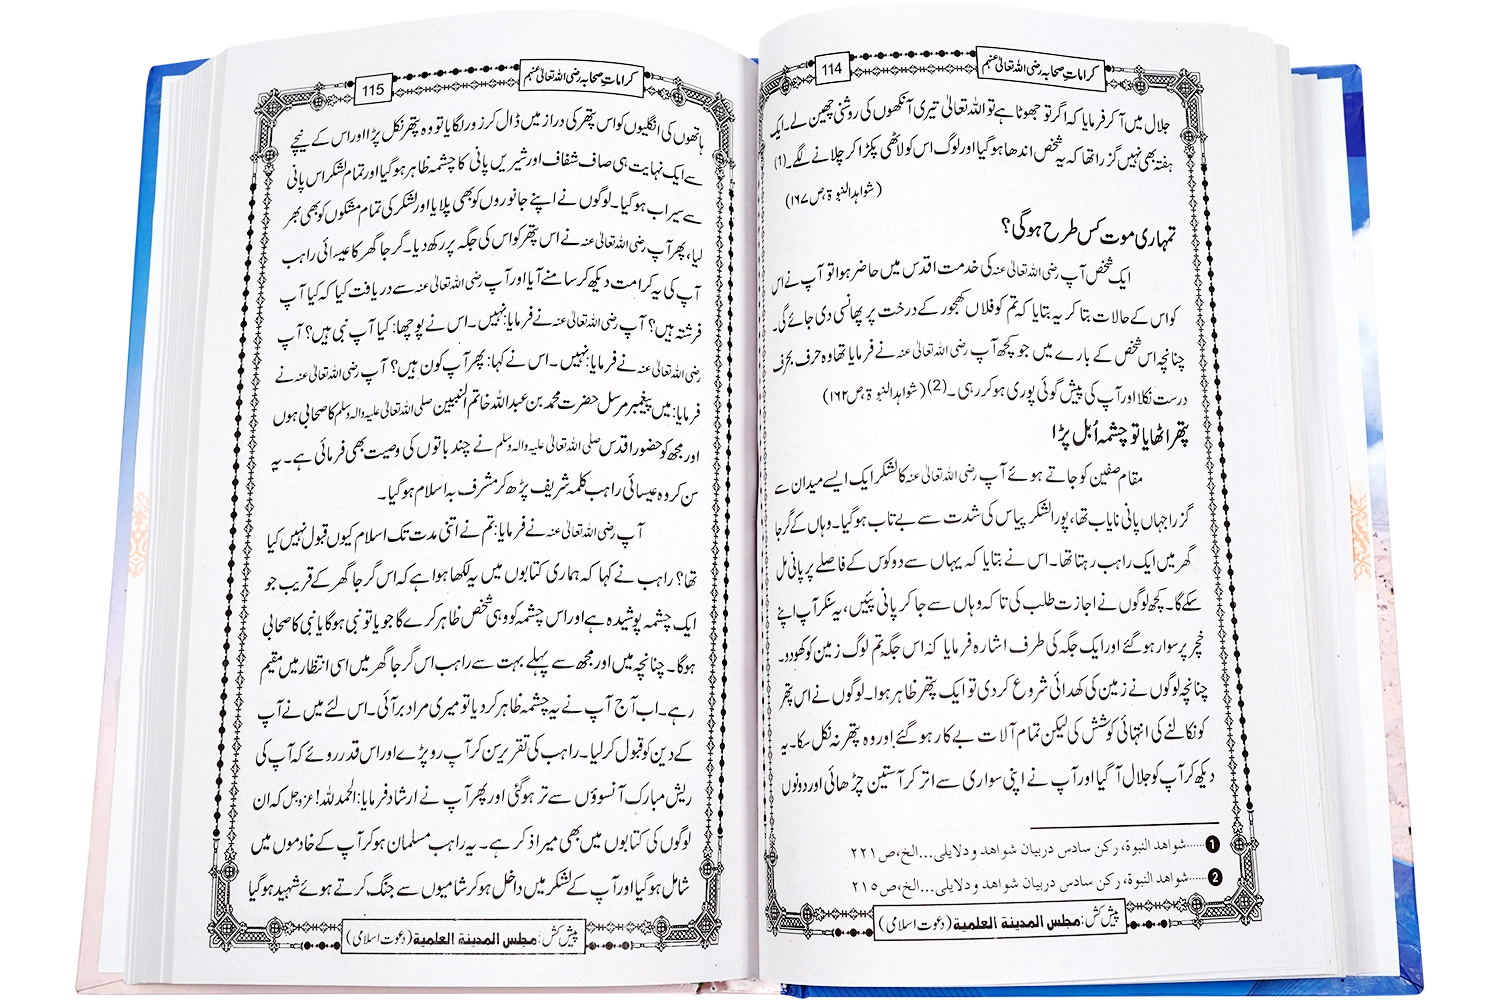 114
کراماتِ صحابہ رضی اللہ تعالیٰ عنہم
جلال میں آ کر فرمایا کہ اگر تو جھوٹا ہے تو اللہ تعالیٰ تیری آنکھوں کی روشنی چھین لے۔ ایک
ہفتہ بھی نہیں گزرا تھا کہ یہ شخص اندھا ہو گیا اور لوگ اس کو لاٹھی پکڑا کر چلانے لگے۔ (1)
(شواہد النبوۃ،ص ۱۶۷)
تمہاری موت کس طرح ہوگی؟
ایک شخص آپ رضی اللہ تعالیٰ عنہ کی خدمت اقدس میں حاضر ہوا تو آپ نے اس
کو اس کے حالات بتا کر یہ بتایا کہ تم کو فلاں کھجور کے درخت پر پھانسی دی جائے گی۔
چنانچہ اس شخص کے بارے میں جو کچھ آپ رضی اللہ تعالیٰ عنہ نے فرمایا تھا وہ حرف بحرف
درست نکلا اور آپ کی پیش گوئی پوری ہو کر رہی۔ (2) (شواہد النبوۃ،ص ۱۶۲)
پتھر اٹھایا تو چشمہ اُبل پڑا
مقام صفین کو جاتے ہوئے آپ رضی اللہ تعالیٰ عنہ کا لشکر ایک ایسے میدان سے
گزرا جہاں پانی نایاب تھا، پورا لشکر پیاس کی شدت سے بے تاب ہو گیا۔ وہاں کے گرجا
گھر میں ایک راہب رہتا تھا۔ اس نے بتایا کہ یہاں سے دو کوس کے فاصلے پر پانی مل
سکے گا۔ کچھ لوگوں نے اجازت طلب کی تاکہ وہاں سے جا کر پانی پئیں، یہ سنکر آپ اپنے
خچر پر سوار ہو گئے اور ایک جگہ کی طرف اشارہ فرمایا کہ اس جگہ تم لوگ زمین کو کھودو۔
چنانچہ لوگوں نے زمین کی کھدائی شروع کر دی تو ایک پتھر ظاہر ہوا۔ لوگوں نے اس پتھر
کو نکالنے کی انتہائی کوشش کی لیکن تمام آلات بے کار ہو گئے اور وہ پتھر نہ نکل سکا۔ یہ
دیکھ کر آپ کو جلال آ گیا اور آپ نے اپنی سواری سے اتر کر آستین چڑھائی اور دونوں
1 ......شواهد النبوة، رکن سادس دربیان شواهد و دلایلی...الخ،ص ۲۲۱
2 ......شواهد النبوة، رکن سادس دربیان شواهد و دلایلی...الخ،ص ۲۱۵
پیش کش: مجلس المدینة العلمیة (دعوت اسلامی)
115
کراماتِ صحابہ رضی اللہ تعالیٰ عنہم
ہاتھوں کی انگلیوں کو اس پتھر کی دراز میں ڈال کر زور لگایا تو وہ پتھر نکل پڑا اور اس کے نیچے
سے ایک نہایت ہی صاف شفاف اور شیریں پانی کا چشمہ ظاہر ہو گیا اور تمام لشکر اس پانی
سے سیراب ہو گیا۔ لوگوں نے اپنے جانوروں کو بھی پلایا اور لشکر کی تمام مشکوں کو بھی بھر
لیا، پھر آپ رضی اللہ تعالیٰ عنہ نے اس پتھر کو اس کی جگہ پر رکھ دیا۔ گرجا گھر کا عیسائی راہب
آپ کی یہ کرامت دیکھ کر سامنے آیا اور آپ رضی اللہ تعالیٰ عنہ سے دریافت کیا کہ کیا آپ
فرشتہ ہیں؟ آپ رضی اللہ تعالیٰ عنہ نے فرمایا: نہیں۔ اس نے پوچھا: کیا آپ نبی ہیں؟ آپ
رضی اللہ تعالیٰ عنہ نے فرمایا: نہیں۔ اس نے کہا: پھر آپ کون ہیں؟ آپ رضی اللہ تعالیٰ عنہ نے
فرمایا: میں پیغمبر مرسل حضرت محمد بن عبداللہ خاتم النبیین صلی اللہ تعالیٰ علیہ والہ وسلم کا صحابی ہوں
اور مجھ کو حضور اقدس صلی اللہ تعالیٰ علیہ والہ وسلم نے چند باتوں کی وصیت بھی فرمائی ہے۔ یہ
سن کر وہ عیسائی راہب کلمہ شریف پڑھ کر مشرف بہ اسلام ہو گیا۔
آپ رضی اللہ تعالیٰ عنہ نے فرمایا: تم نے اتنی مدت تک اسلام کیوں قبول نہیں کیا
تھا؟ راہب نے کہا کہ ہماری کتابوں میں یہ لکھا ہوا ہے کہ اس گرجا گھر کے قریب جو
ایک چشمہ پوشیدہ ہے اور اس چشمہ کو وہی شخص ظاہر کرے گا جو یا تو نبی ہوگا یا نبی کا صحابی
ہوگا۔ چنانچہ میں اور مجھ سے پہلے بہت سے راہب اس گرجا گھر میں اسی انتظار میں مقیم
رہے۔ اب آج آپ نے یہ چشمہ ظاہر کر دیا تو میری مراد بر آئی۔ اس لئے میں نے آپ
کے دین کو قبول کر لیا۔ راہب کی تقریر سن کر آپ رو پڑے اور اس قدر روئے کہ آپ کی
ریش مبارک آنسوؤں سے تر ہو گئی اور پھر آپ نے ارشاد فرمایا: الحمد للہ! عزوجل کہ ان
لوگوں کی کتابوں میں بھی میرا ذکر ہے۔ یہ راہب مسلمان ہو کر آپ کے خادموں میں
شامل ہو گیا اور آپ کے لشکر میں داخل ہو کر شامیوں سے جنگ کرتے ہوئے شہید ہو گیا
پیش کش: مجلس المدینة العلمیة (دعوت اسلامی)